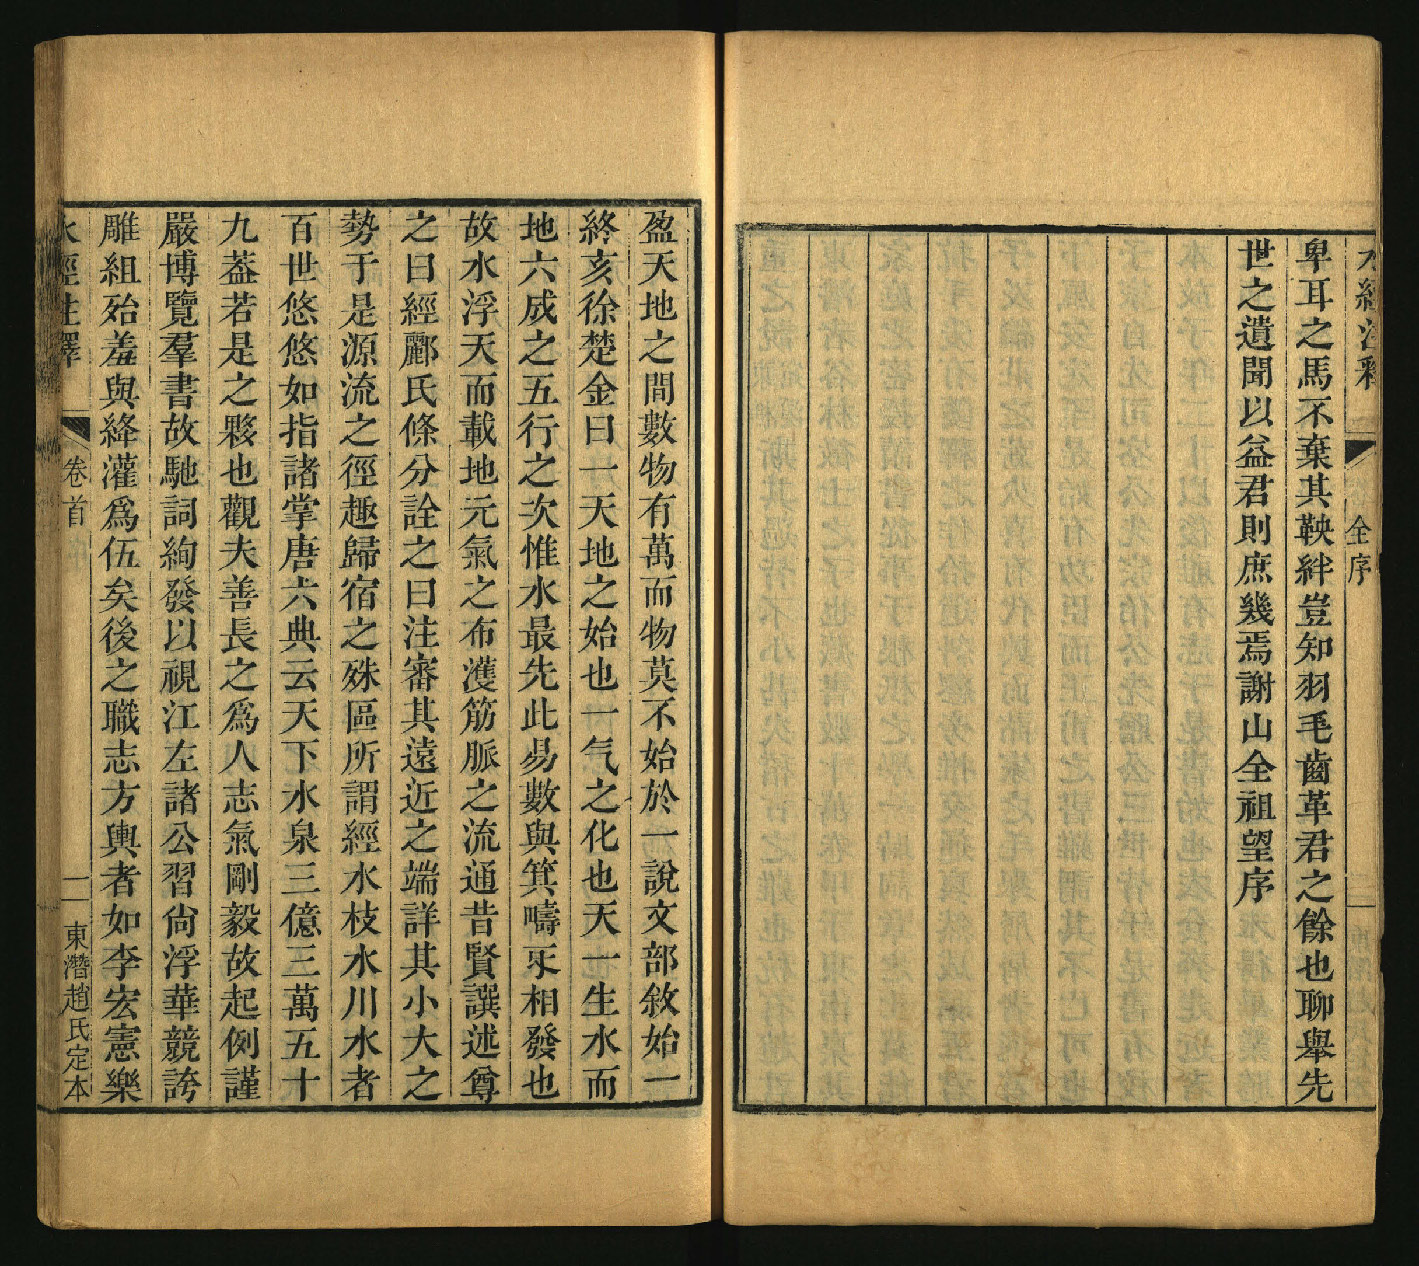 水經注釋 全序
卑耳之馬不棄其鞅絆豈知羽毛齒革君之餘也聊舉先
世之遺聞以益君則庶幾焉謝山全祖望序
盈天地之間數物有萬而物莫不始於一說文部敘始一
終亥徐楚金曰一天地之始也一气之化也天一生水而
地六成之五行之次惟水最先此易數與箕疇㸦相發也
故水浮天而載地元氣之布濩筋脈之流通昔賢譔述尊
之曰經酈氏條分詮之曰注審其遠近之端詳其小大之
勢于是源流之徑趣歸宿之殊區所謂經水枝水川水者
百世悠悠如指諸掌唐六典云天下水泉三億三萬五十
九葢若是之夥也觀夫善長之爲人志氣剛毅故起例謹
嚴博覽羣書故馳詞絢發以視江左諸公習尙浮華競誇
雕組殆羞與絳灌爲伍矣後之職志方輿者如李宏憲樂
水經注釋 卷首 一 東潛趙氏定本